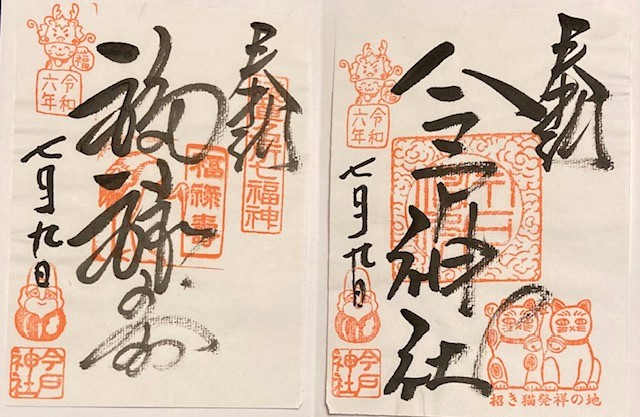 奉拝
七福神
福禄寿
福禄寿
福
令和
六年
七月九日
今戸
神社
奉拝
今戸神社
令和
六年
七月九日
今戸
神社
招き猫発祥の地